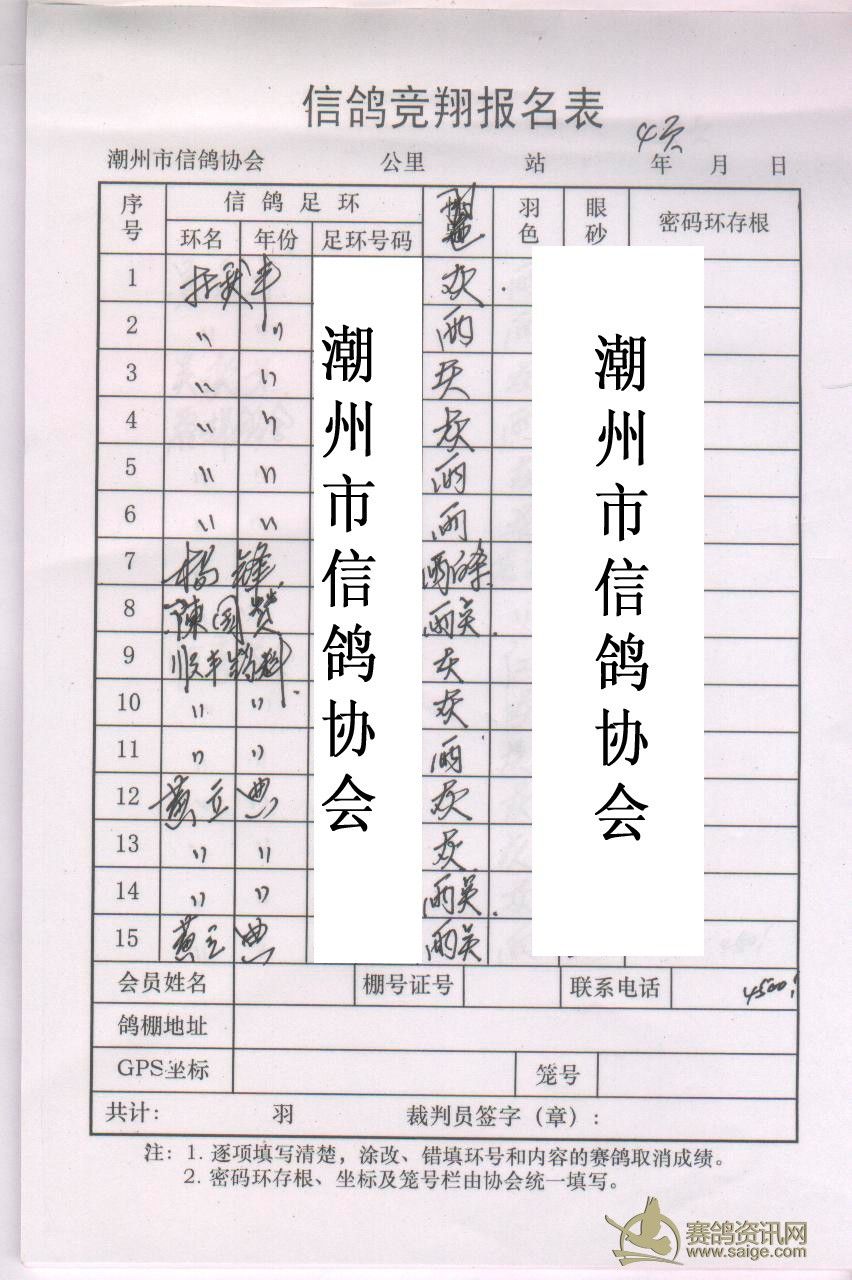 信鸽竞翔报名表
4页
潮州市信鸽协会 公里 站 年 月 日
序号 信鸽足环 羽色 眼砂 密码环存根
环名 年份 足环号码
1 灰
2 〃 〃 雨
3 〃 〃 灰
4 〃 〃 灰
5 〃 〃 雨
6 〃 〃 雨
7 杨锋 雨条
8 陳国赞 雨吴
9 顺丰鸽料 灰
10 〃 〃 灰
11 〃 〃 雨
12 黄立典 灰
13 〃 〃 灰
14 〃 〃 雨吴
15 黄立典 雨吴
潮州市信鸽协会
潮州市信鸽协会
会员姓名 棚号证号 联系电话 4500
鸽棚地址
GPS坐标 笼号
共计: 羽 裁判员签字(章):
注: 1. 逐项填写清楚，涂改、错填环号和内容的赛鸽取消成绩。
2. 密码环存根、坐标及笼号栏由协会统一填写。
赛鸽资讯网
www.saige.com